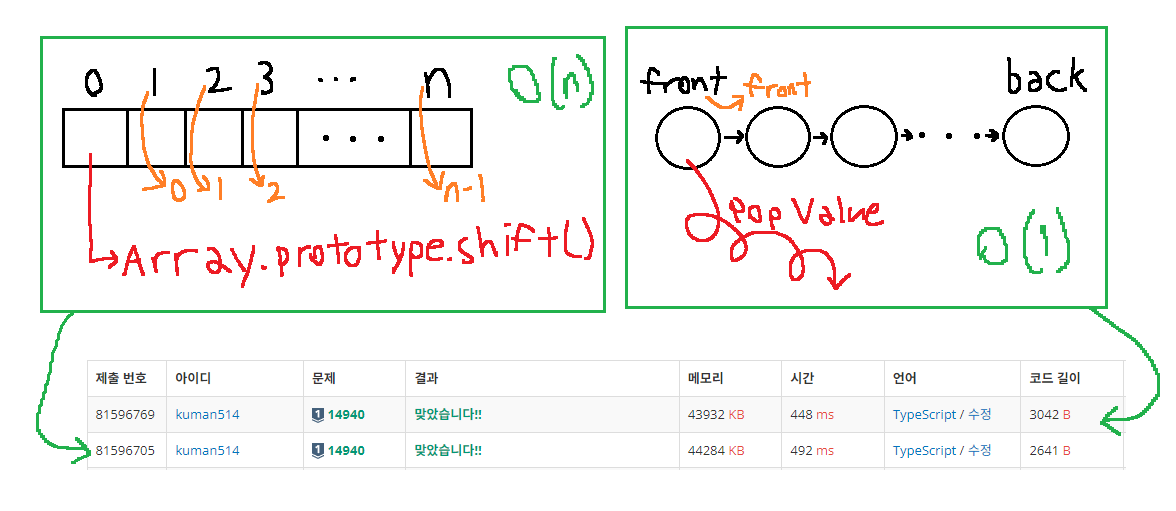 0 1 2 3 ... n
O(n)
... 
→0 1 2 n-1
Array.prototype.shift()
front front back
...
Pop Value
O(1)
제출 번호 아이디 문제 결과 메모리 시간 언어 코드 길이
81596769 kuman514 1 14940 맞았습니다!! 43932 KB 448 ms TypeScript / 수정 3042 B
81596705 kuman514 1 14940 맞았습니다!! 44284 KB 492 ms TypeScript / 수정 2641 B